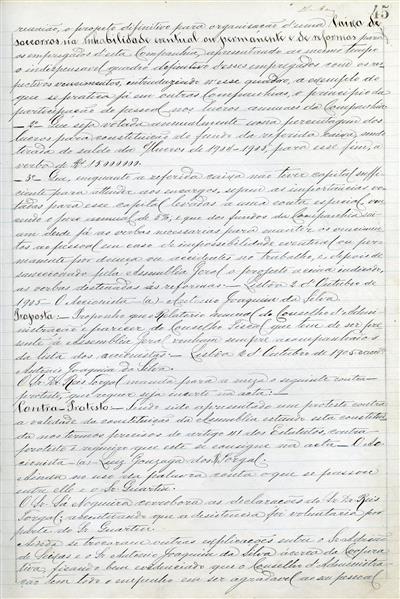 45
reunião, o projeto definitivo para organisação d'uma Caixa de
soccorros na inhabilidade eventual ou permanente e de reformas para
os empregados d'esta Companhia, apresentando ao mesmo tempo
o indispensavel quadro definitivo d'esses empregados com os res-
pectivos vencimentos, introduzindo n'esse quadro, a exemplo do
que se pratica já em outras Companhias, o principio da
participação do pessoal nos lucros annuaes da Companhia
— 2º Que seja votada annualmente uma percentagem dos
lucros para constituição do fundo da referida caixa, sendo
tirada do saldo da de Lucros de 1904-1905, para esse fim, a
verba de
— 3º Que, enquanto a referida caixa não tiver capital suffi-
ciente para attender aos encargos, sejam as importancias vo-
tadas para esse capital levadas a uma conta especial ven-
cendo o juro annual de 5%, e que dos fundos da Companhia sai-
am desde já as verbas necessarias para manter os vencimen-
tos ao pessoal em caso de impossibilidade eventual ou per-
manente por doença ou accidentes no trabalho, e depois de
sanccionado pela Assemblea Geral o projecto acima indicado,
as verbas destinadas ás reformas — Lisboa 2 d'Outubro de
1905 — O Accionista (a) Antonio Joaquim da Silva.
Proposta:— Proponho que o Relatorio annual do Conselho d'Admi-
nistração e parecer do Conselho Fiscal que tem de ser pre-
sente á Assemblea Geral venham sempre acompanhados
da lista dos accionistas — Lisboa 2 d'Outubro de 1905
Antonio Joaquim da Silva.
O Sr. Dr. Reis Torgal manda para a meza o seguinte contra-
protesto, que requer seja inserto na acta:—
Contra-Protesto — Tendo sido apresentado um protesto contra
a validade da constituição da Assemblea estando esta constitui-
da nos termos precisos do artigo 11º dos Estatutos contra-
protesto e requeiro que este se consigne na acta — O Ac-
cionista (a) Luiz Gonzaga dos Reis Torgal.
Ainda no uso da palavra conta o que se passou
entre elle e o Sr. Quartin.
O Sr. Sá Nogueira corrobora as declarações do Sr. Dr. Reis
Torgal; accentuando que a desistencia foi voluntaria por
parte do Sr. Quartin.
Ainda se trocaram outras explicações entre o Sr.
de Seixas e o Sr. Antonio Joaquim da Silva ácerca da Coopera-
tiva, ficando bem evidenciado que o Conselho d'Administra-
ção tem todo o empenho em ser agradavel ao seu pessoal